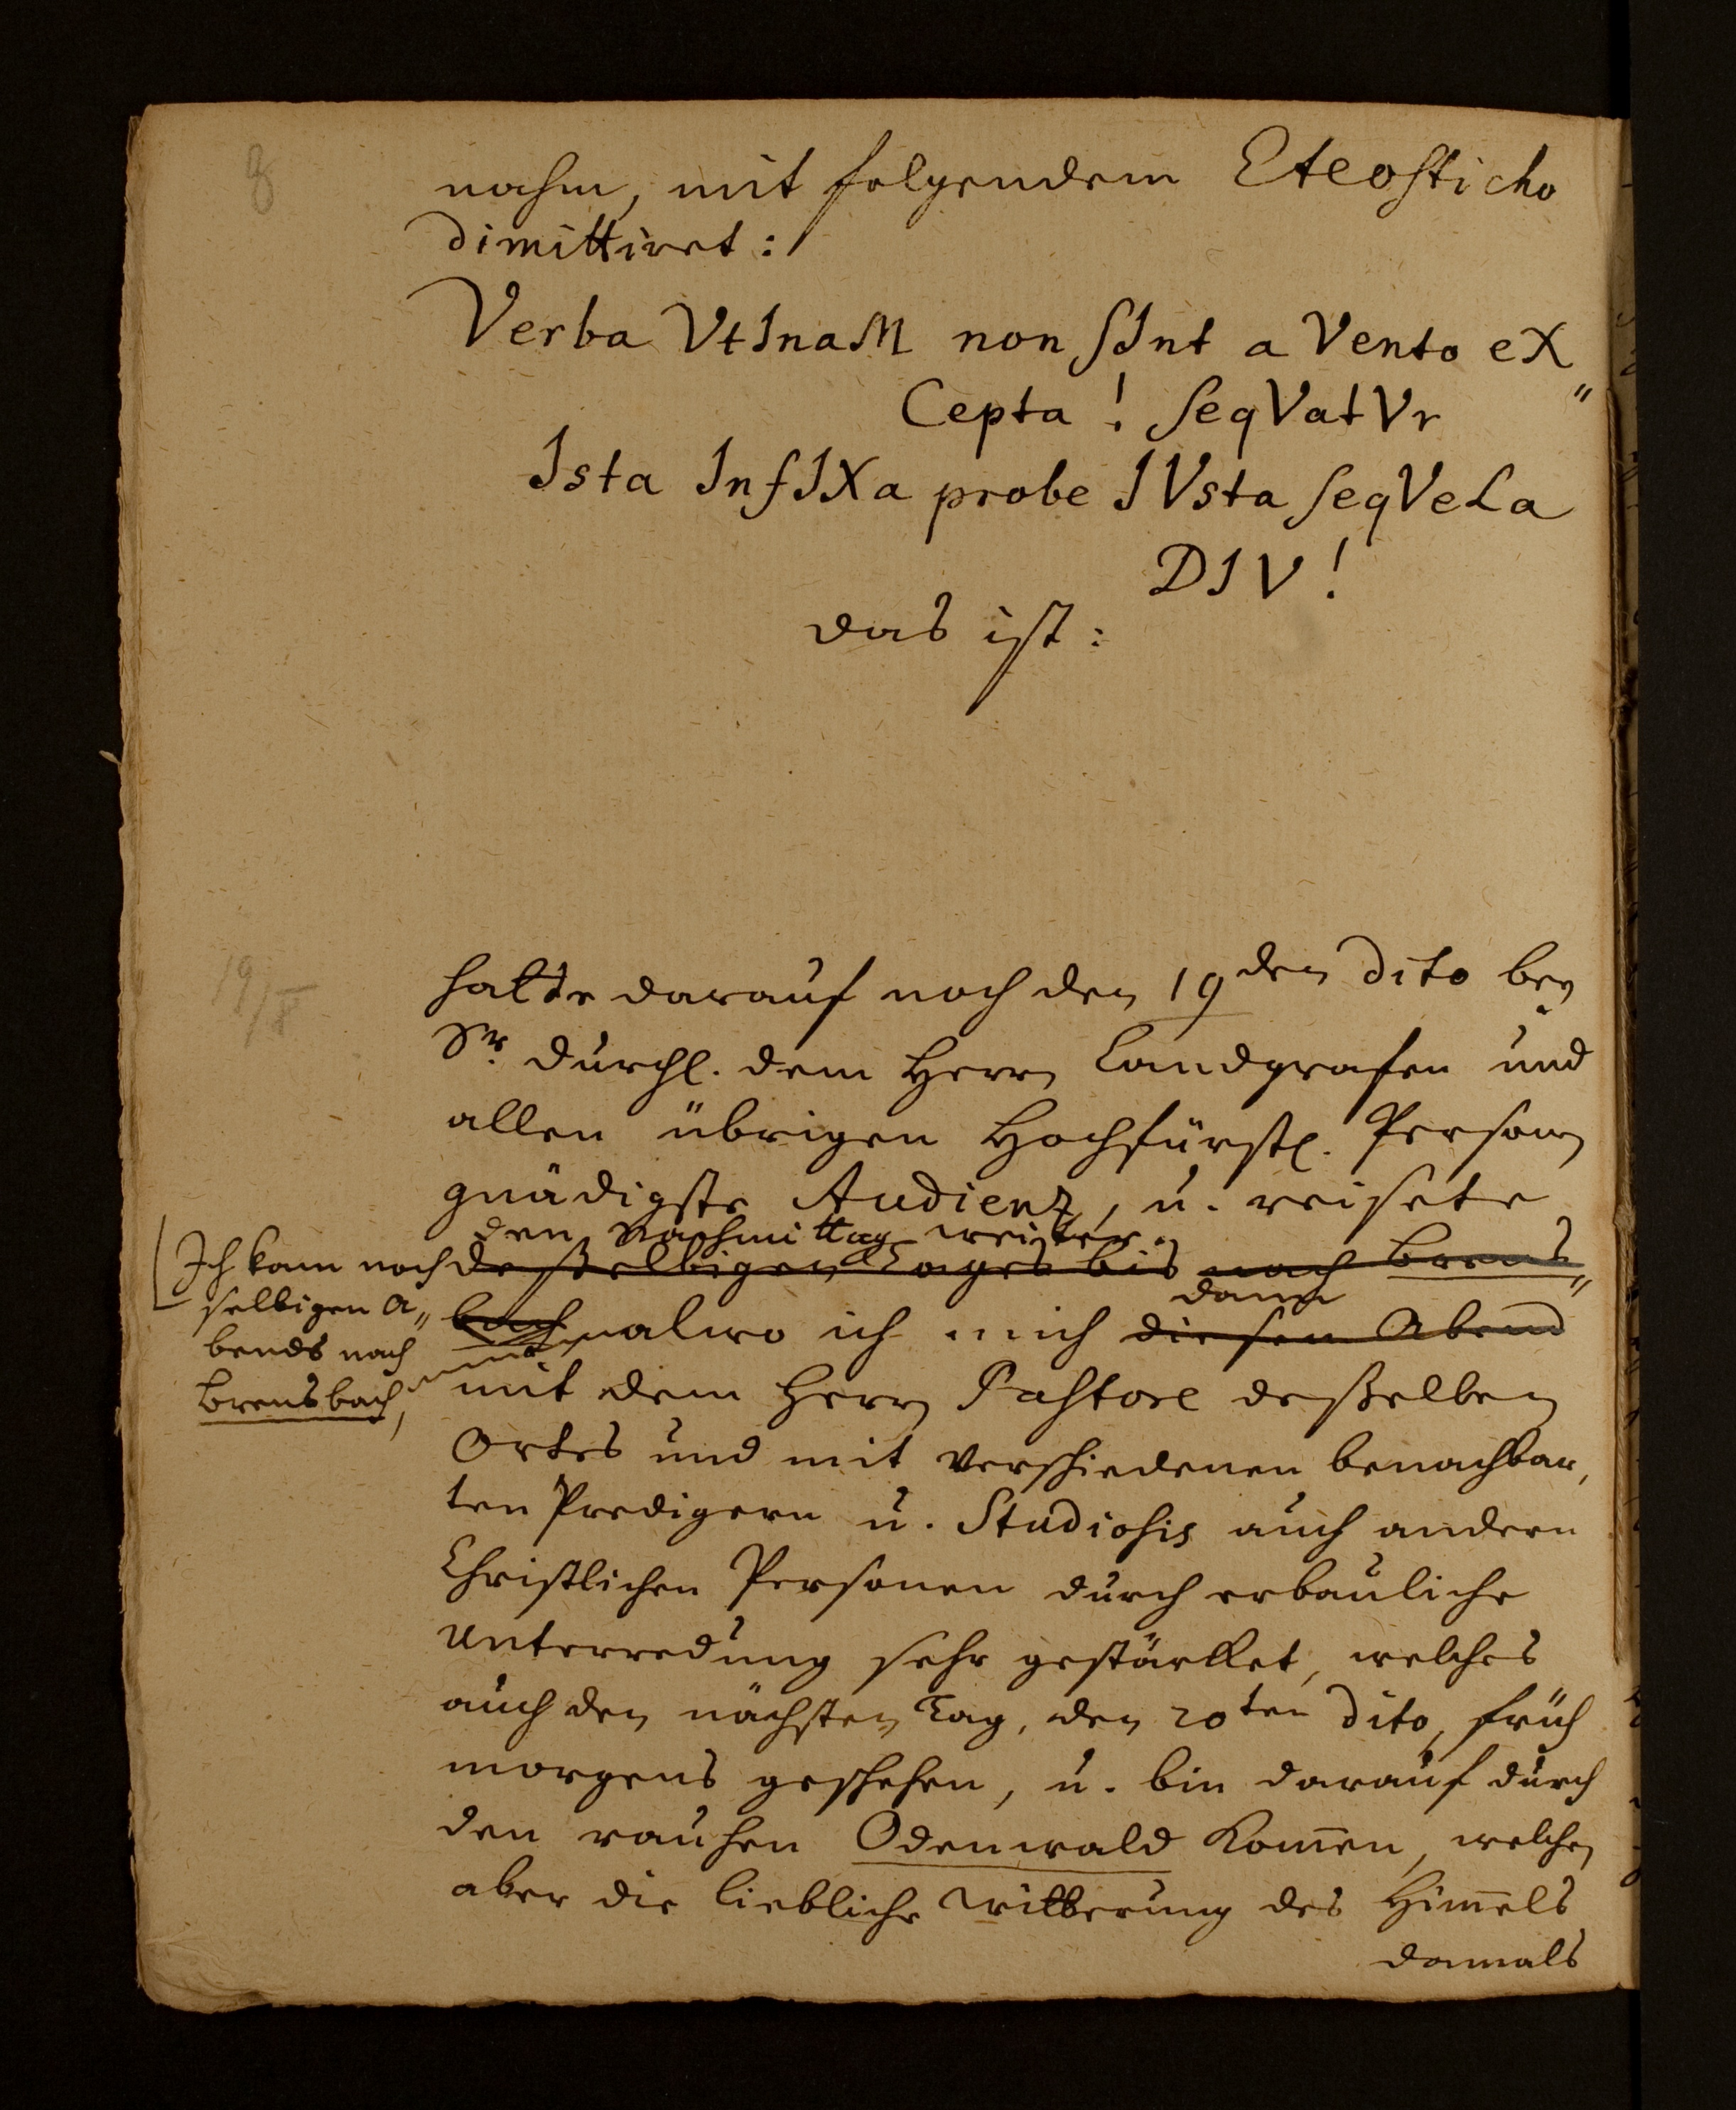 8
nahm, mit folgendem Eteosticho
dimittiret:
Verba VtInaM non sInt a Vento eX„
Cepta! seqVatVr
Ista InfIXa probe IVsta seqVeLa
DIV!
das ist:
19/8
hatte darauf noch den 19den dito bey
Sr. Durchl. dem Herrn Landgrafen und
allen übrigen Hochfürstl. Personen
gnädigste Audienz, u. reisete
den Nachmittag weiter.
deßelbigen Tages bis nach Brens„
Ich kam noch
selbigen A„
bends nach
Brensbach,
dann
bach alwo ich mich diesen Abend
mit dem Herrn Pastore deßelben
Ortes und mit verschiedenen benachbar,
ten Predigern u. Studiosis auch andern
Christlichen Personen durch erbauliche
Unterredung sehr gestärket, welches
auch den nächsten Tag, den 20ten dito, früh
morgens geschehen, u. bin darauf durch
den rauhen Odenwald kom̄en, welchen
aber die liebliche Witterung des Him̄els
damals